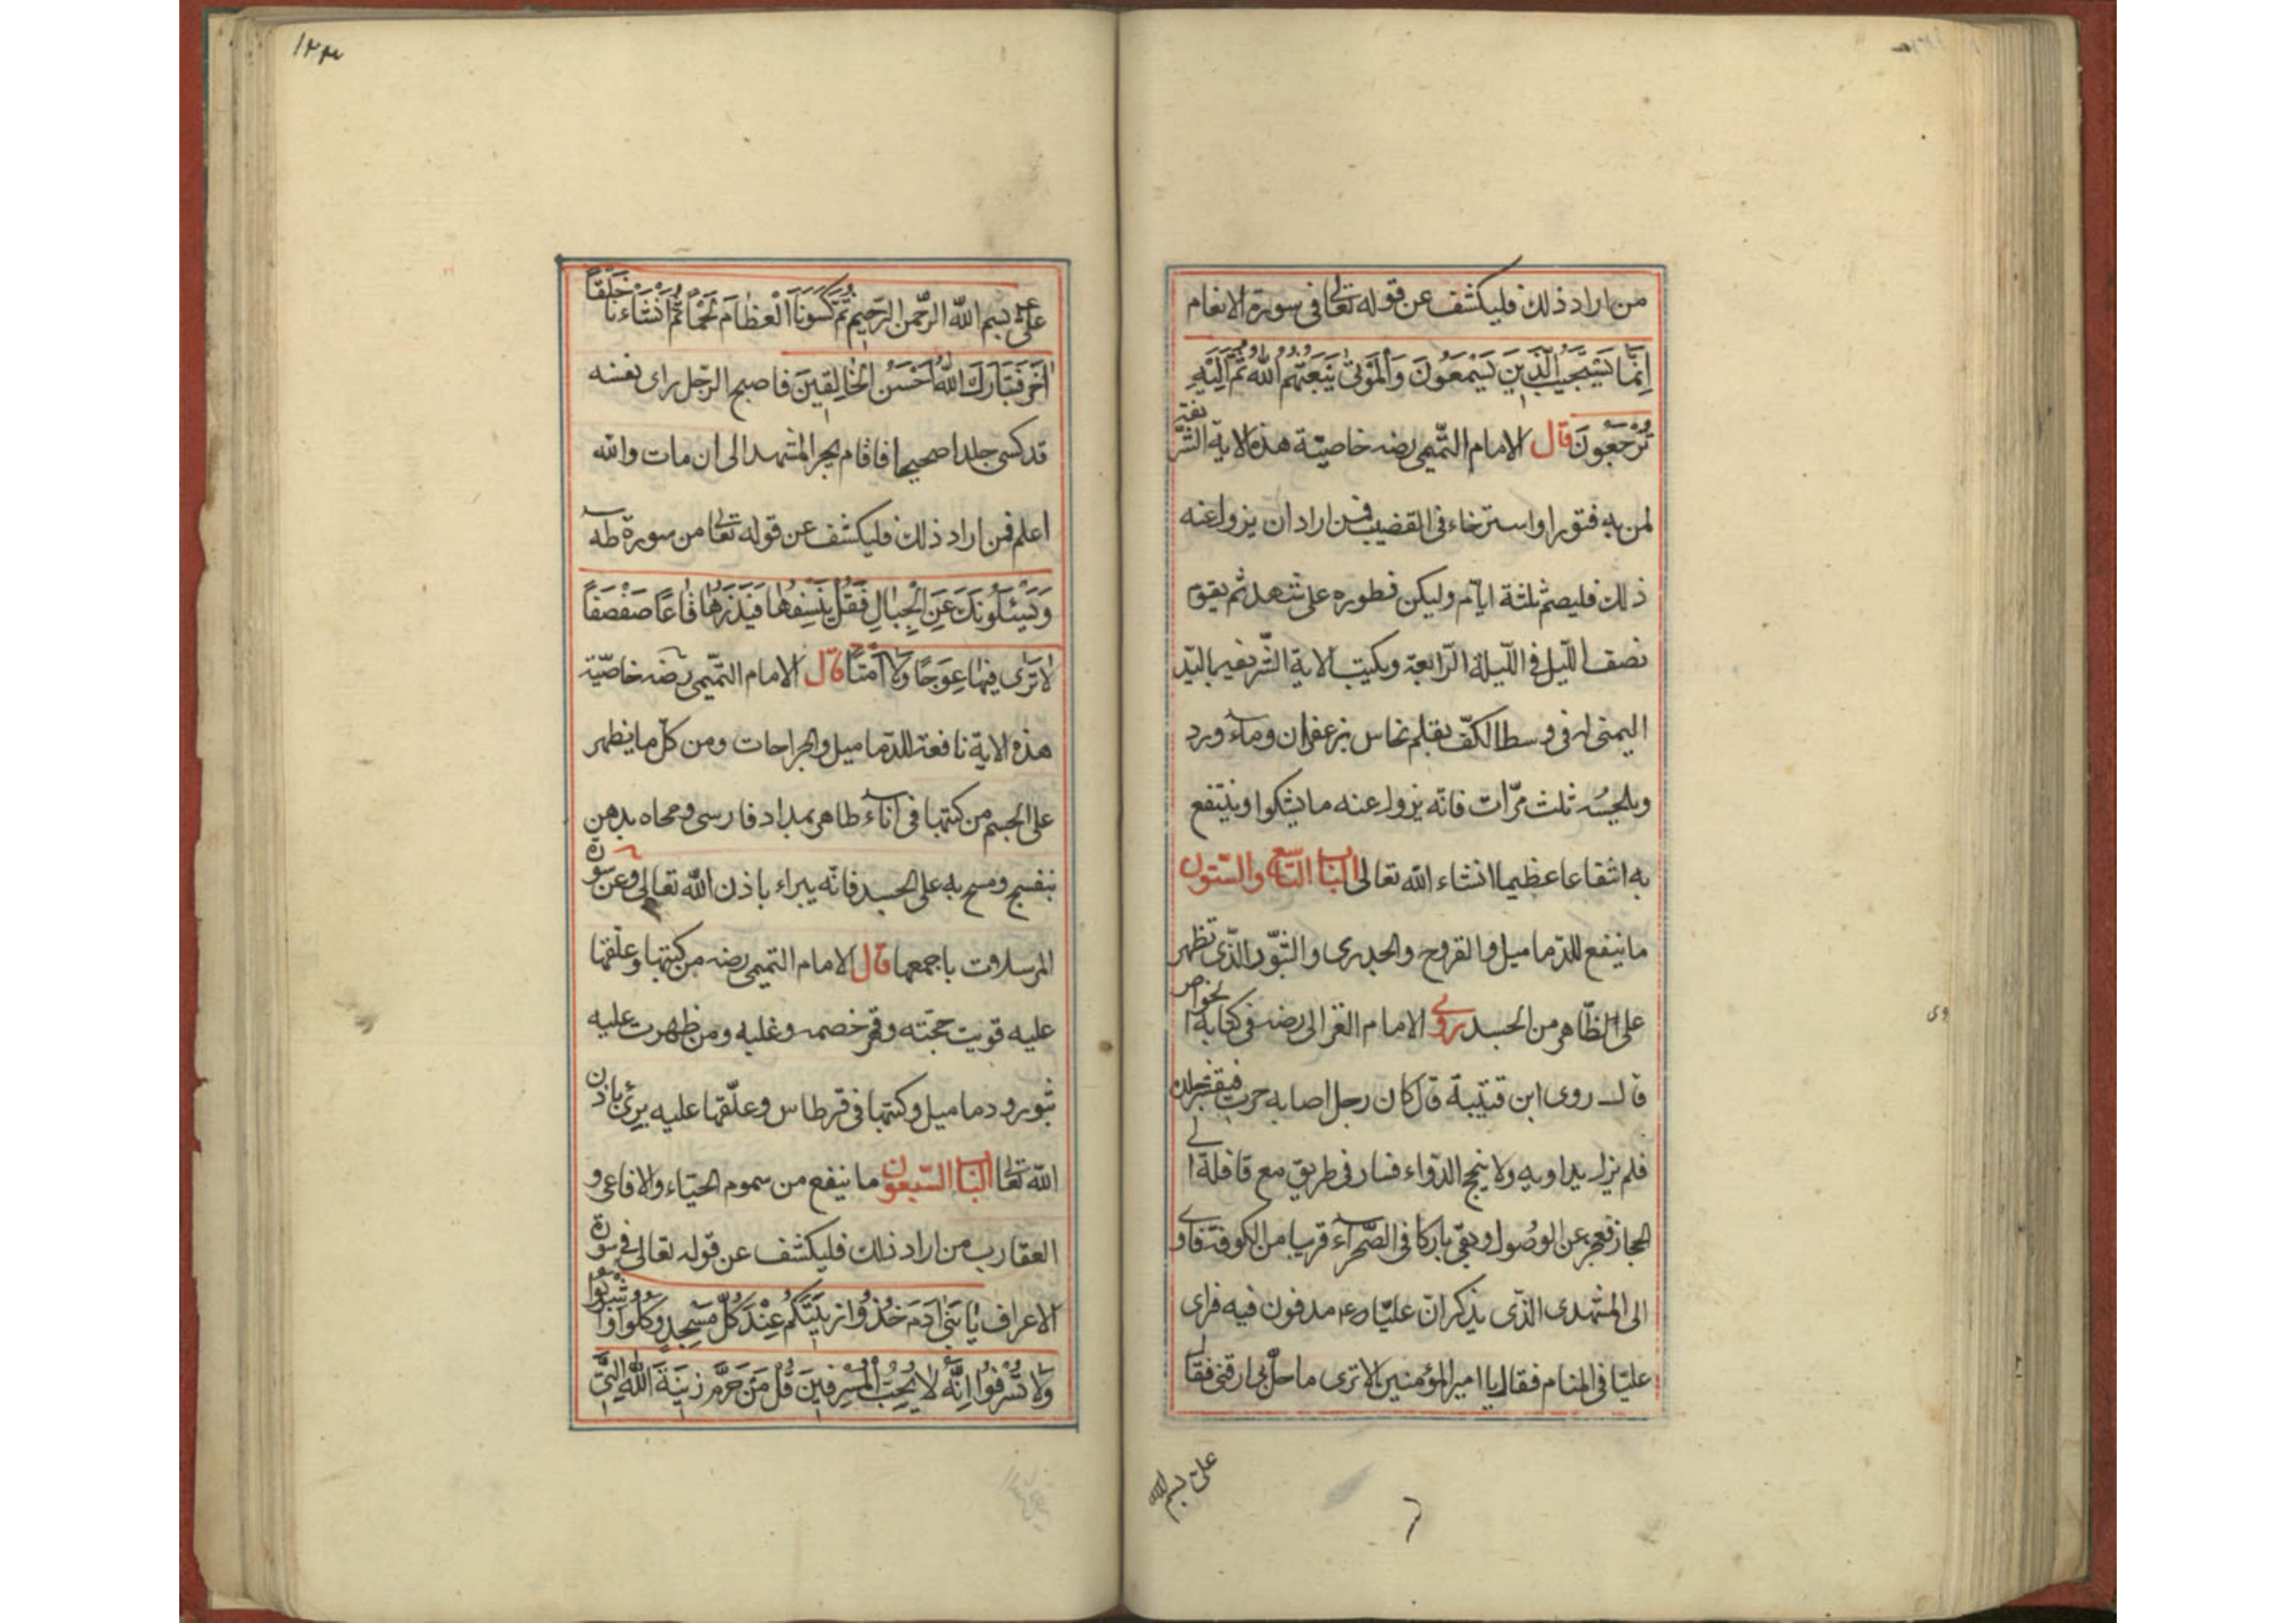 من اراد ذلك فليكشف عن قوله تعالى فى سورة الانعام
اِنَّمَا يَسْتَجيبُ الَّذينَ يَسْمَعُونَ وَالْمَوْتىٰ يَبْعَثُهُمُ اللّٰهُ ثُمَّ اِلَيْهِ
تُرْجَعُونَ قال الامام التّميمى رضه خاصيّة هذه الاية الشّريفة
لمن به فتور او استرخاء فى القضيب فمن اراد ان يزول عنه
ذلك فليصم ثلثة ايّام وليكن فطوره على شهد ثم يقوم
نصف اللّيل فى اللّيلة الرّابعة ويكتب الاية الشّريفة باليد
اليمنى فى وسط الكفّ بقلم نحاس بزعفران وماء ورد
ويلحسُه ثلث مرّات فانّه يزول عنه ما يشكوا وينتفع
به انتفاعا عظيما انشاء الله تعالى الباب التاسع والستون
ما ينفع للدّماميل والقروح والجدرى والبثور الذّى تظهر
على الظّاهر من الجسد روى الامام الغزالى رضه فى كتابه الخواص
قال روى ابن قتيبة قال كان رجل اصابه جرب فيقشر جلده
فلم يزل يداويه ولا ينجح الدّواء فسار فى طريق مع قافلة الى
الحجاز فعجز عن الوصُول وبقى باركا فى الصّحراء قريبا من الكوفة فاوى
الى المشهدى الذّى يذكر انّ عليّا رضه مدفون فيه فراى
عليّا فى المنام فقال يا اميرالمؤمنين الا ترى ما حلّ بى ارقنى فقال لى
على بسم الله
علىّ بسم اللّه الرّحمن الرّحيم ثُمَّ كَسَوْنَا الْعِظَامَ لَحْمًا ثُمَّ اَنْشَاْنَاهُ خَلْقًا
اٰخَرَ فَتَبَارَكَ اللّٰهُ اَحْسَنُ الْخَالِقينَ فاصبح الرّجل راى نفسه
قد كسى جلدا صحيحا فاقام بجر المشهد الى ان مات والله
اعلم فمن اراد ذلك فليكشف عن قوله تعالى من سورة طه
وَيَسْئَلُونَكَ عَنِ الْجِبَالِ فَقُلْ يَنْسِفُهَا فَيَذَرُهَا قَاعًا صَفْصَفًا
لَا تَرٰى فِيهَا عِوَجًا وَلَا اَمْتًا قال الامام التّميمى رضه خاصّية
هذه الاية نافعة للدّماميل والجراحات ومن كلّ ما يظهر
على الجسم من كتبها فى اناء طاهر بمداد فارسى ومحاه بدهن
بنفسج ومسح به على الجسد فانّه يبراء باذن اللّه تعالى وعن سورة
المرسلات باجمعها قال الامام التميمى رضه من كتبها وعلّقها
عليه قويت حجّته وقهر خصمه وغلبه ومن ظهرت عليه
بثور ودماميل وكتبها فى قرطاس وعلّقها عليه برئ باذن
اللّه تعالى الباب السّبعون ما ينفع من سموم الحيّاء والافاعى و
العقارب من اراد ذلك فليكشف عن قوله تعالى فى سورة
الاعراف يَا بَنى اٰدَمَ خُذُوا زِينَتَكُمْ عِنْدَ كُلِّ مَسْجِدٍ وَكُلُوا وَاشْرَبُوا
وَلَا تُسْرِفُوا اِنَّهُ لَا يُحِبُّ الْمُسْرِفينَ قُلْ مَنْ حَرَّمَ زينَةَ اللّٰهِ الَّتى